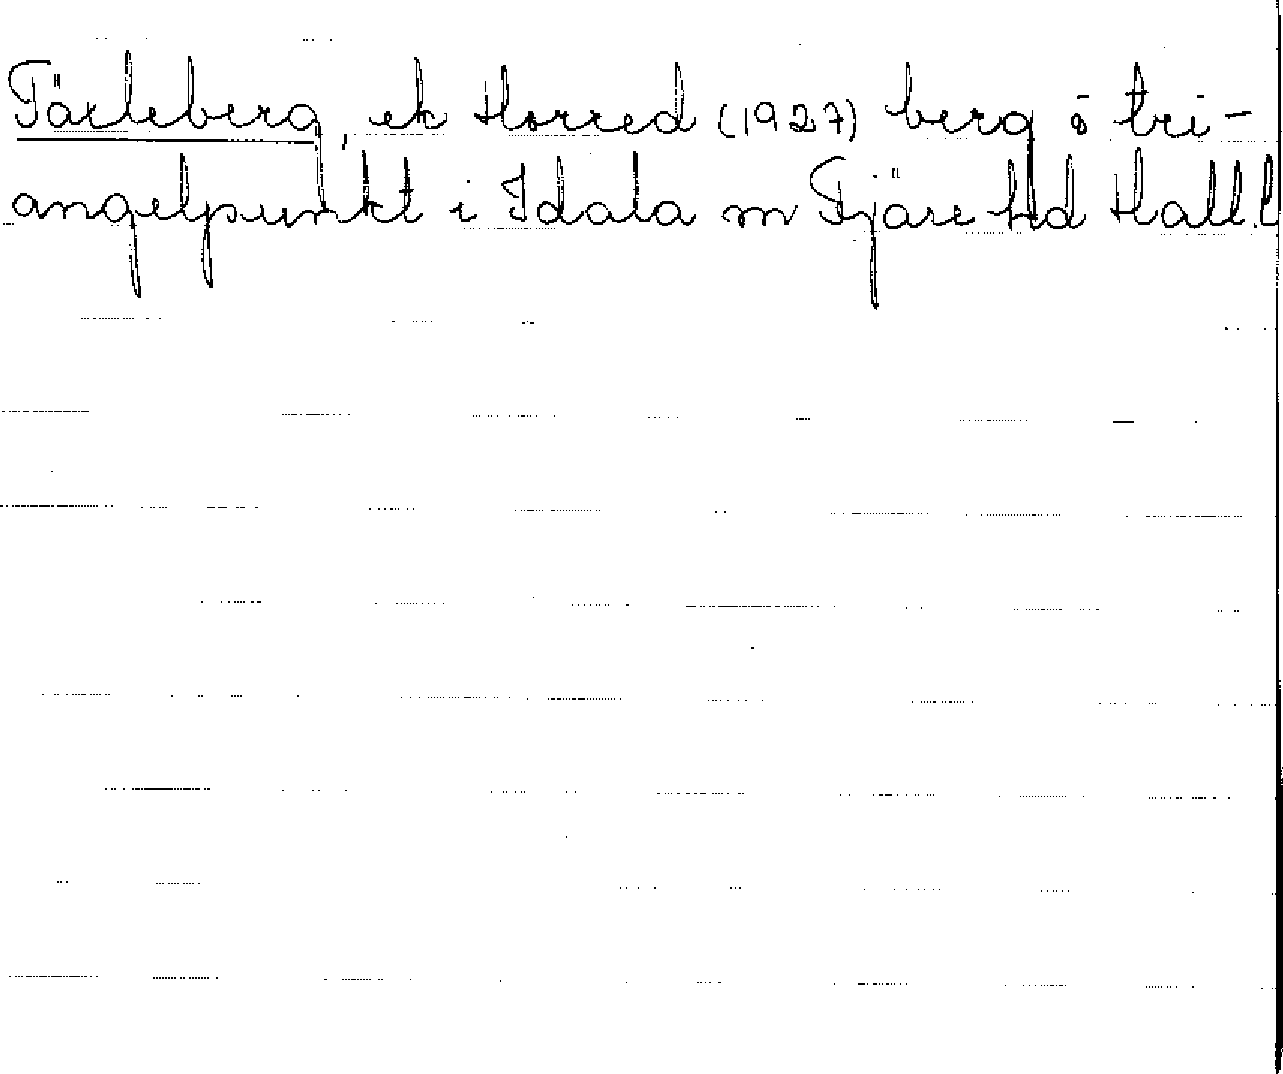 Tärleberg, ek Horred (1927) berg ö tri-
angelpunkt i Idala sn Fjäre hd Hall.l